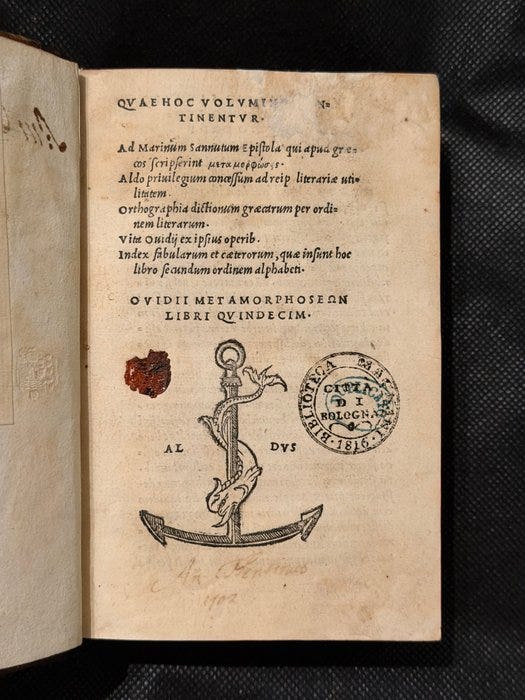 QVAE HOC VOLVMINE CON=
TINENTVR.
Ad Marinum Sannutum Epistola qui apud græ=
cos scripserint μεταμορφώσεις.
Aldo priuilegium concessum ad reip literariæ uti=
litatem.
Orthographia dictionum græcarum per ordi=
nem literarum.
Vita Ouidij ex ipsius operib.
Index fabularum et cæterorum, quæ insunt hoc
libro secundum ordinem alphabeti.
OVIDII METAMORPHOSEΩN
LIBRI QVINDECIM.
AL DVS
BIBLIOTECA MAGNANI
CITTA
DI
BOLOGNA
1816